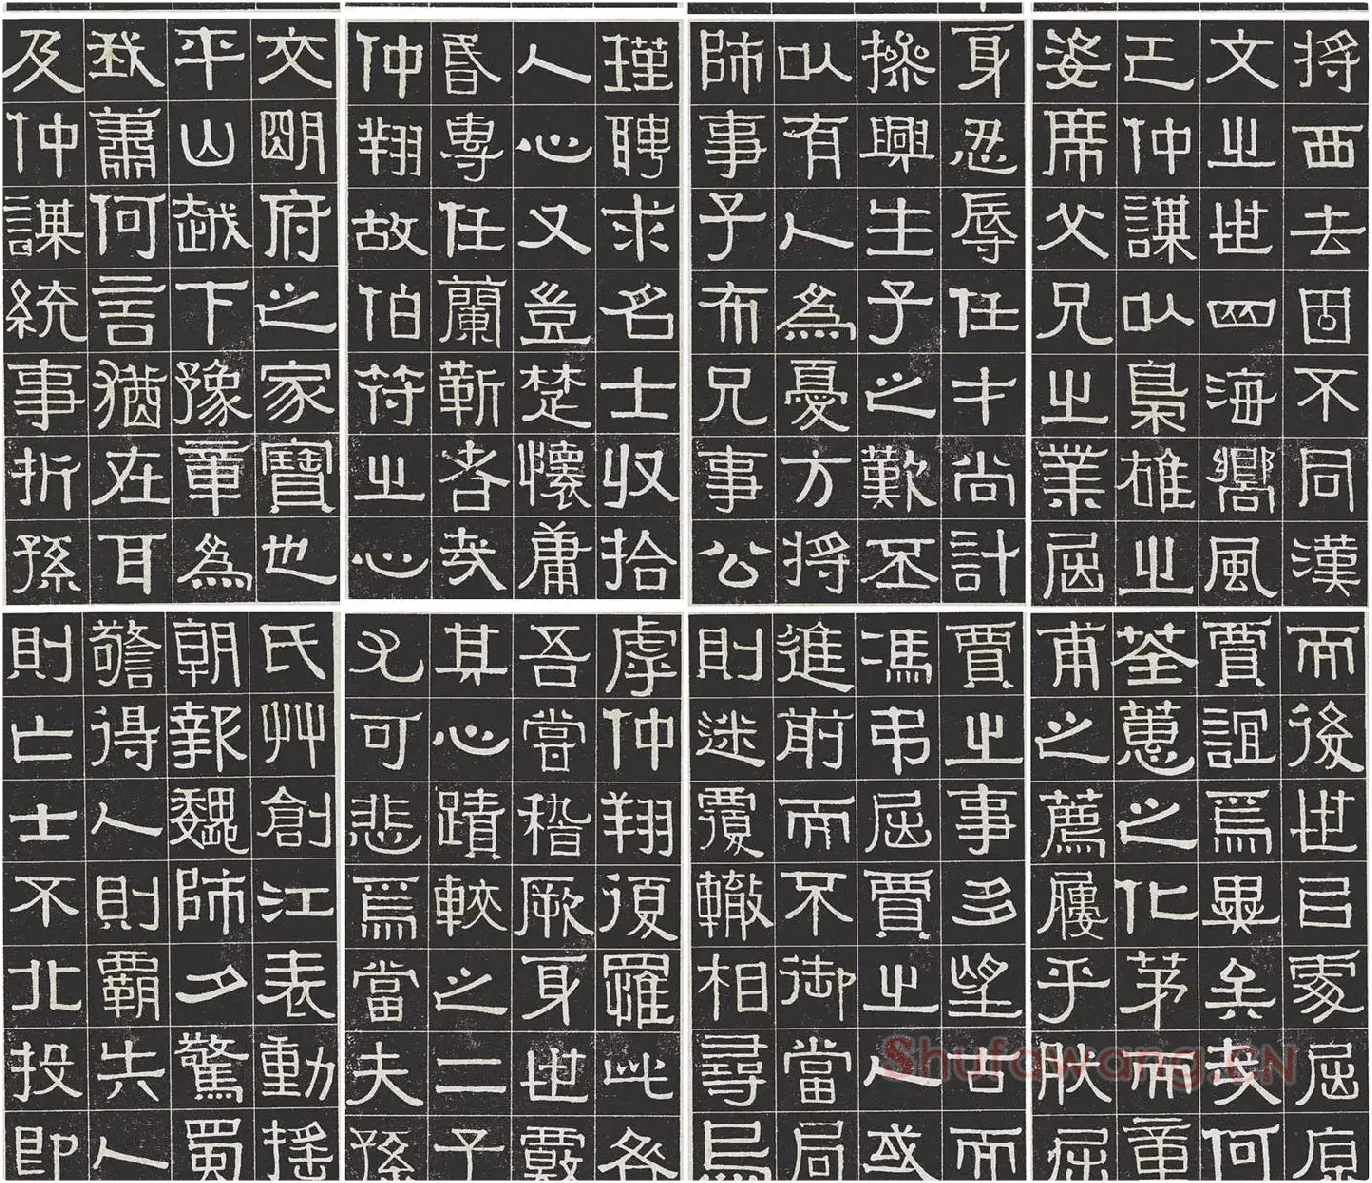 將西去固不同漢
文之世四海嚮風
已仲謀以梟雄之
姿席父兄之業屈
身忍辱任才尚計
操興生子之歎丕
以有人為憂方將
師事子布兄事公
瑾聘求名士收拾
人心又豈楚懷庸
昏專任蘭靳者哉
仲翔故伯符之心
交明府之家寶也
平山越下豫章為
我肅何言猶在耳
及仲謀統事折孫
而後世以冡屈原
賈誼焉異矣夫何
荃蕙之化茅而章
甫之薦屨乎耿掘
賈之事多望古而
馮弔屈賈之人或
進前而不御當局
則迷覆轍相尋烏
虖仲翔復罹此咎
吾嘗稽厥身世覈
其心蹟較之二子
尤可悲焉當夫孫
氏艸創江表動搖
朝報魏師夕驚蜀
警得人則霸失人
則亡士不北投即
Shufawang.CN